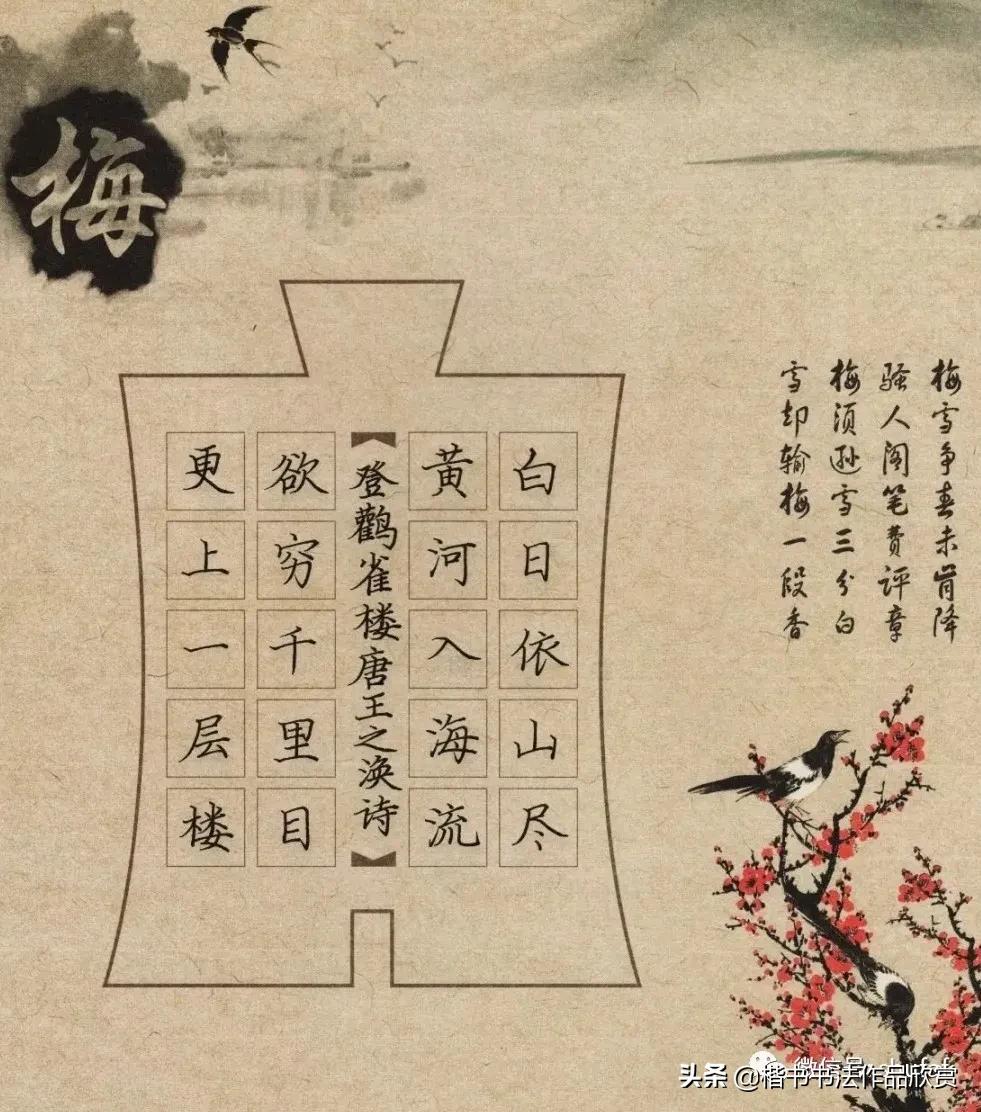 梅
梅雪争春未肯降
骚人阁笔费评章
梅须逊雪三分白
雪却输梅一段香
白日依山尽
黄河入海流
登鹳雀楼唐王之涣诗
欲穷千里目
更上一层楼
头条 @楷书书法作品欣赏